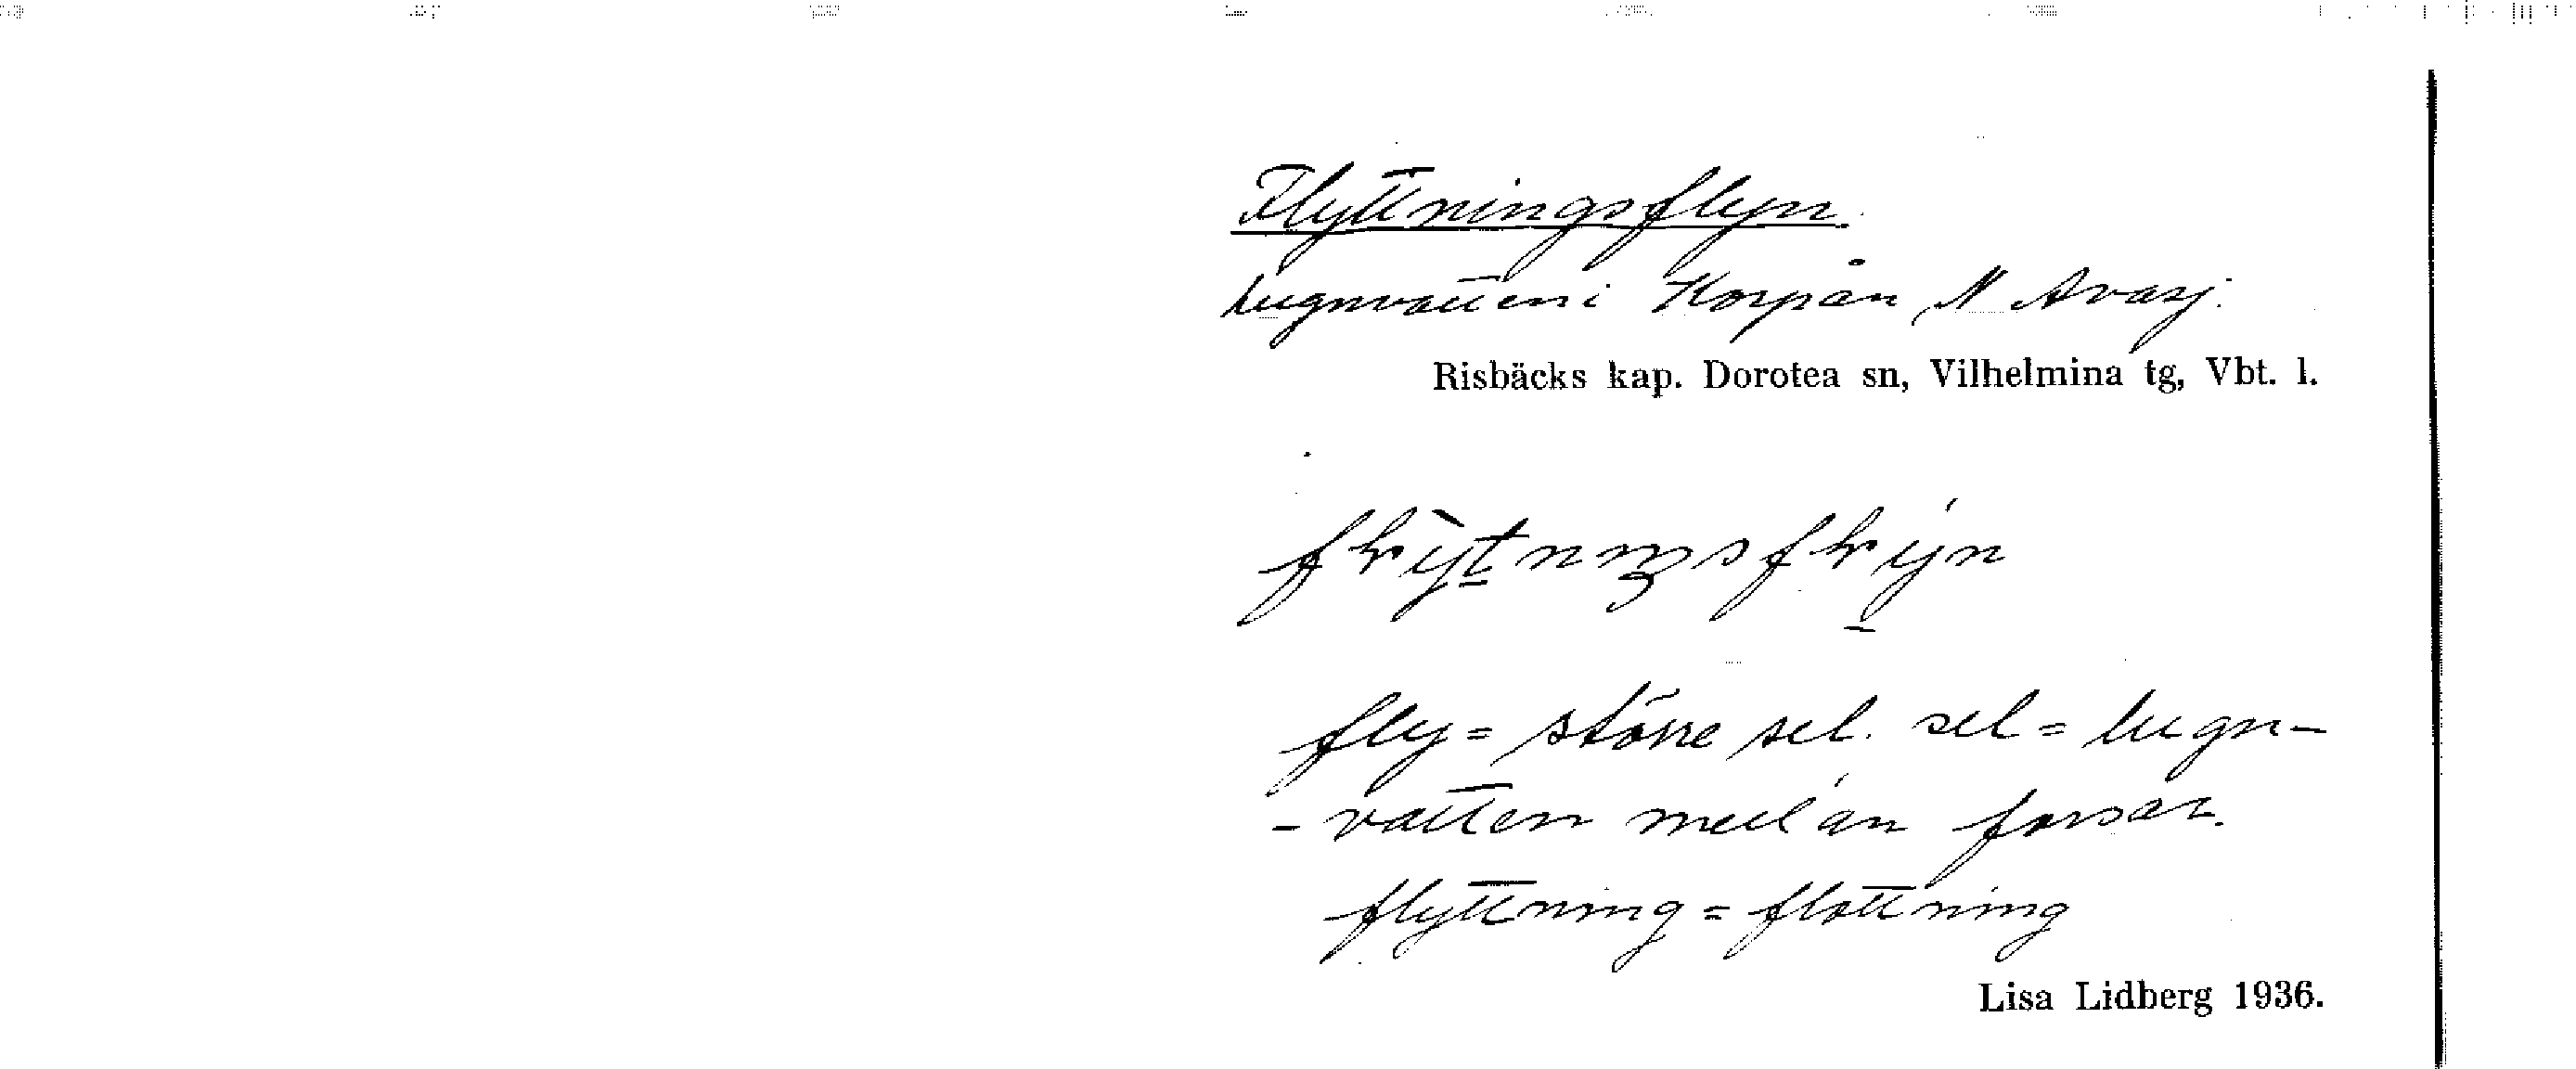 Flyttningsflyn
lugnvatten i Korpån, N Avasj.
Risbäcks kap. Dorotea sn, Vilhelmina tg, Vbt. l.
fly = större sel. sel = lugn-
- vatten mellan forsar.
flyttning = flottning
Lisa Lidberg 1936.